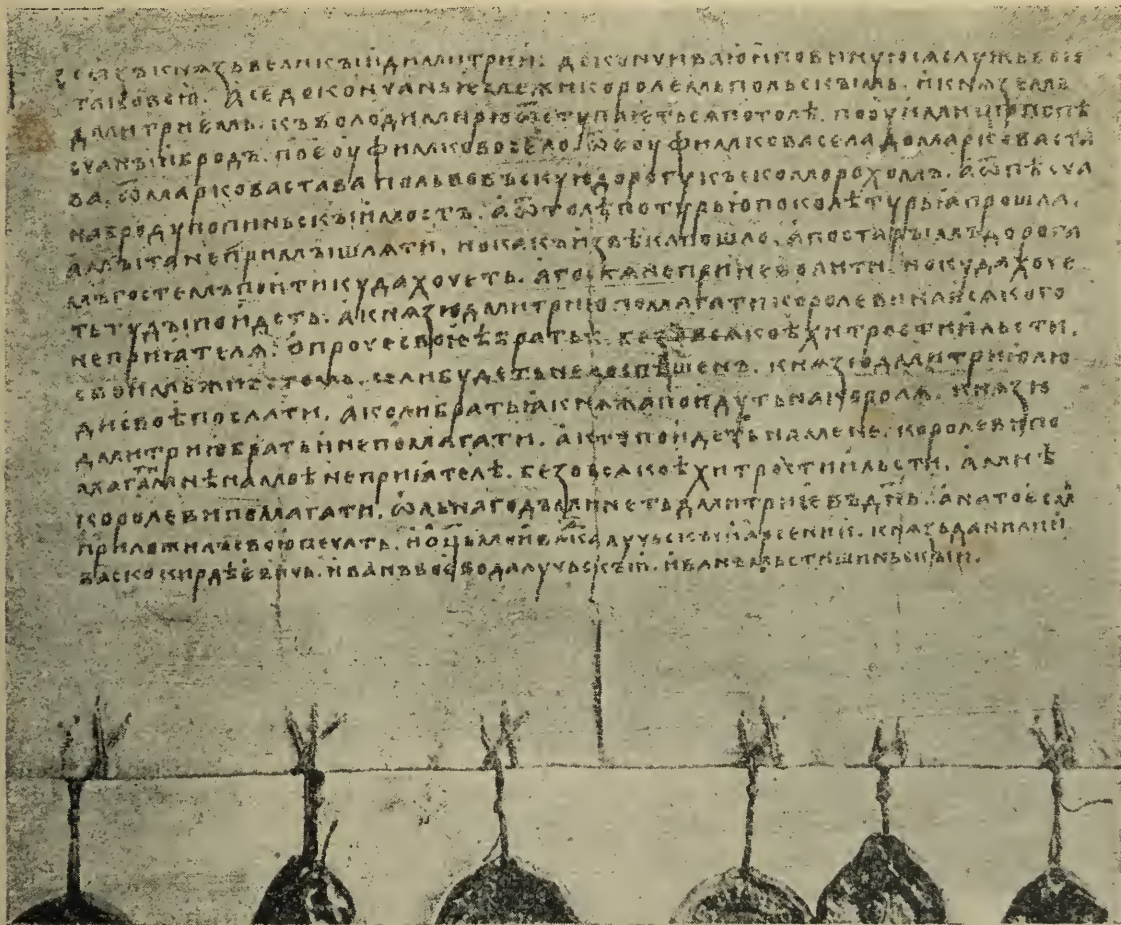 сѧзъкнѧзьвеликъıидимитрии. докончиваюиповинуюсѧслужьбою
таковою. аседоконъчаньемежикоролемьпольскъıмь. икнѧземь
дмитриемь. къволодимирюѿступаетьсѧпотолѣ. почимирипопѣ
счанъıибродъ. поеѹфимковосело. ѿеѹфимковаселадомарковаста
ва. ѿмарковаставапольвовьскуюдорогукъскоморохомъ. аѿпѣсча
набродупопиньскъıимостъ. аѿтолѣпотурьюпоколѣтурьıапрошла.
амъıтанепримъıшлѧти. нокакъизвѣкапошло. апостаръıмъдорога
мъгостемъпоитикудахочеть. агостѧнеприневолити. нокудахоче
тьтудъıпоидеть. акнѧзюдмитриюпомагатикоролевинавсѧкого
неприıатєлѧ. опрочесвоеѣбратьѣ. безовсѧкоѣхитростиильсти.
своимьживотомь. _lибудетьнедоспѣшенъ. кнѧзюдмитриюлю
дисвоѣпослати. аколибратьıакнѧжапоидутьнакоролѧ. кнѧзю
дмитриюбратьинепомагати. актопоидетьнамене. королевипо
магатимнѣнамоѣнеприıателѣ. безовсѧкоѣхитростиильсти. амнѣ
королевипомагати. ѿльнагодъминетьдмитриевъднь. анатоесмь
приложилъсвоюпечать. иоць мои влⷣкалучьскъıиарсении. кнѧзьданилии
васкокирдѣевичь. ивановоеводалучьскъıи. иванъмьстишиньскъıи.